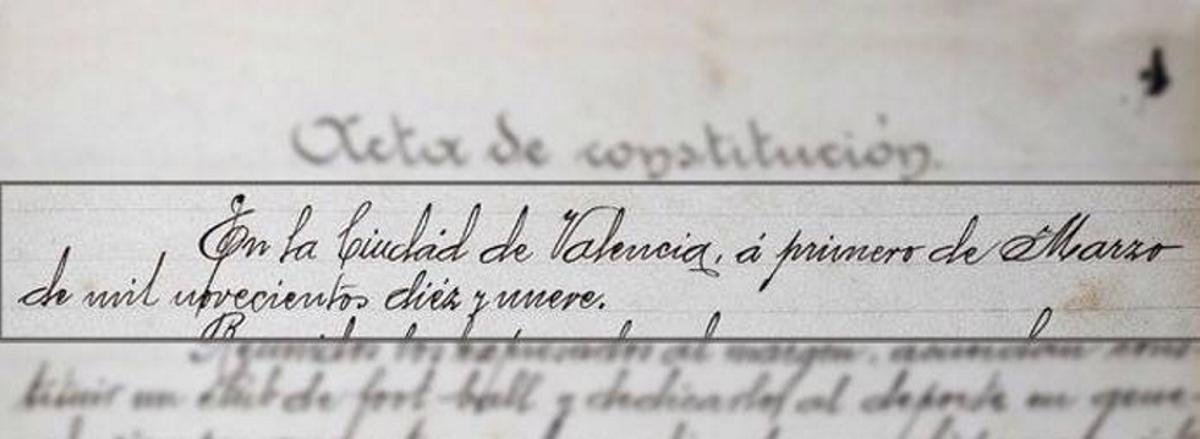 Acta de constitución.
En la Ciudad de Valencia, á primero de Marzo
de mil novecientos diéz y nueve.
Reunidos los expresados al margen, acuerdan cons
tituir un club de foot-ball y dedicarlo al deporte en gene-